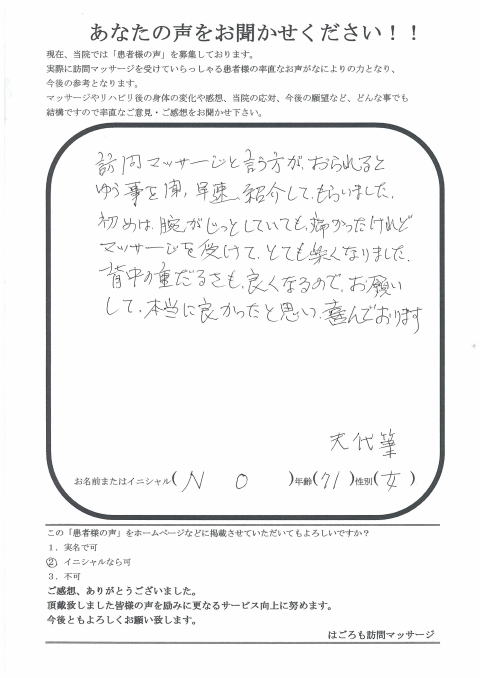 あなたの声をお聞かせください！！
現在、当院では「患者様の声」を募集しております。
実際に訪問マッサージを受けていらっしゃる患者様の率直なお声がなによりの力となり、
今後の参考となります。
マッサージやリハビリ後の身体の変化や感想、当院の応対、今後の願望など、どんな事でも
結構ですので率直なご意見・ご感想をお聞かせ下さい。
訪問マッサージと言う方が、おられると
ゆう事を聞、早速 紹介して、もらいました。
初めは、腕がじっとしていても、痛かったけれど
マッサージを受けて、とても楽くなりました。
背中の重だるさも、良くなるので、お願い
して、本当に良かったと思い、喜んでおります
夫代筆
お名前またはイニシャル( N O )年齢(71)性別(女)
この「患者様の声」をホームページなどに掲載させていただいてもよろしいですか？
１．実名で可
② イニシャルなら可
３．不可
ご感想、ありがとうございました。
頂戴致しました皆様の声を励みに更なるサービス向上に努めます。
今後ともよろしくお願い致します。
はごろも訪問マッサージ